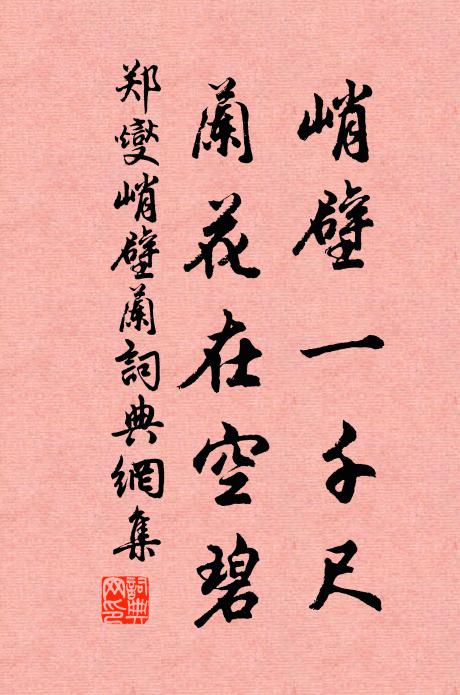 峭壁一千尺
蘭花在空碧
郑燮峭壁蘭詞典網集
詞典网印